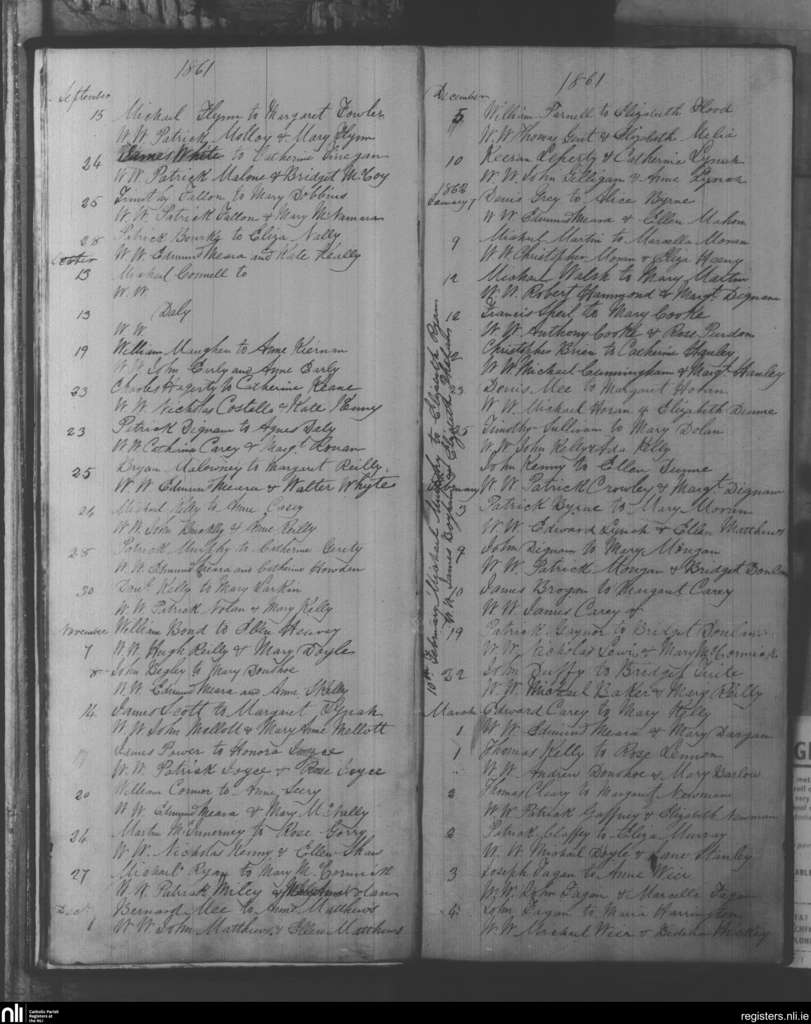 1861
September
15 Michael Flynn to Margaret Fowler
W.W. Patrick Molloy & Mary Flynn
24 James White to Catherine Finegan
W.W. Patrick Malone & Bridget McCoy
25 Timothy Fallon to Mary Dobbins
W.W. Patrick Fallon & Mary McNamara
28 Patrick Bourke to Eliza Nally
W.W. Edmund Meara and Kate Really
October
13 Michael Connell to
W.W.
13 Daly
W.W.
19 William Maughan to Anne Kiernan
W.W. John Curly and Anne Early
23 Charles Hagerty to Catherine Keane
W.W. Nicholas Costello & Kate Kenny
23 Patrick Dignam to Agnes Daly
W.W. Catherine Carey & Margt. Ronan
25 Bryan Malowney to Margaret Reilly
W.W. Edmund Meara & Walter Whyte
26 Michael Kelly to Anne Casey
W.W. John Buckley & Anne Reilly
28 Patrick Murphy to Catherine Gerity
W.W. Edmund Meara and Catherine Howden
30 Danl. Kelly to Mary Larkin
W.W. Patrick Nolan & Mary Kelly
November William Bond to Ellen Hearey
7 W.W. Hugh Reilly & Mary Doyle
8 John Begley to Mary Donohoe
W.W. Edmund Meara and Anne Skelly
14 James Scott to Margaret Lynch
W.W. John Mellott & Mary Anne Mellott
James Power to Honora Joyce
W.W. Patrick Joyce & Rose Joyce
20 William Connor to Anne Seery
W.W. Edmund Meara & Mary McNally
26 Martin McInerney to Rose Gorry
W.W. Nicholas Kenny & Ellen Shaw
27 Michael Ryan to Mary McCormick
W.W. Patrick Wiley & Nolan
Decr. Bernard Mee to Anne Matthews
1 W.W. John Matthews & Ellen Matthews
1861
December
5 William Parnell to Elizabeth Flood
W.W. Thomas Gent & Elizabeth Melia
10 Keeran Leferty & Catherine Lynch
W.W. John Gilligan & Anne Lynch
1862
January 7 Denis Grey to Alice Byrne
W.W. Edmund Meara & Ellen Mahon
9 Michael Martin to Marcella Moran
W.W. Christopher Moran & Eliza Heeny
12 Michael Walsh to Mary Martin
W.W. Robert Hammond & Margt. Dignam
12 Francis Speil to Mary Cooke
W.W. Anthony Cooke & Rose Purdon
Christopher Brien to Catherine Hanley
W.W. Michael Cunningham & Margt. Hanley
23 Denis Mee to Margaret Horan
W.W. Michael Horan & Elizabeth Dunne
25 Timothy Sullivan to Mary Dolan
W.W. John Kelly & Ada Kelly
John Kenny to Ellen Dunne
February W.W. Patrick Crowley & Margt. Dignam
3 Patrick Byrne to Mary Moran
W.W. Edward Lynch & Ellen Matthews
9 John Dignam to Mary Mongan
W.W. Patrick Mongan & Bridget Donlon
10 James Brogan to Margaret Carey
W.W. James Carey &
19 Patrick Gaynor to Bridget Donlon
W.W. Nicholas Lowe & Mary McCormick
22 John Duffy to Bridget Tuite
W.W. Michael Baker & Mary Reilly
March Edward Carey to Mary Kelly
1 W.W. Edmund Meara & Mary Dargan
1 Thomas Kelly to Rose Lennon
" W.W. Andrew Donohoe & Mary Barlow
2 Thomas Cleary to Margaret Newman
W.W. Patrick Gaffney & Elizabeth Newman
2 Patrick Claffey to Eliza Murray
W.W. Michael Doyle & Jane Stanley
3 Joseph Fagan to Anne Weir
W.W. John Fagan & Marcella Fagan
4 John Fagan to Maria Harrington
W.W. Michael Weir & Bedelia Hickey
10th February Michael Murphy to Elizabeth Ryan
W.W. James Brophy & Elizabeth
nli
Catholic Parish
Registers at
the NLI
registers.nli.ie